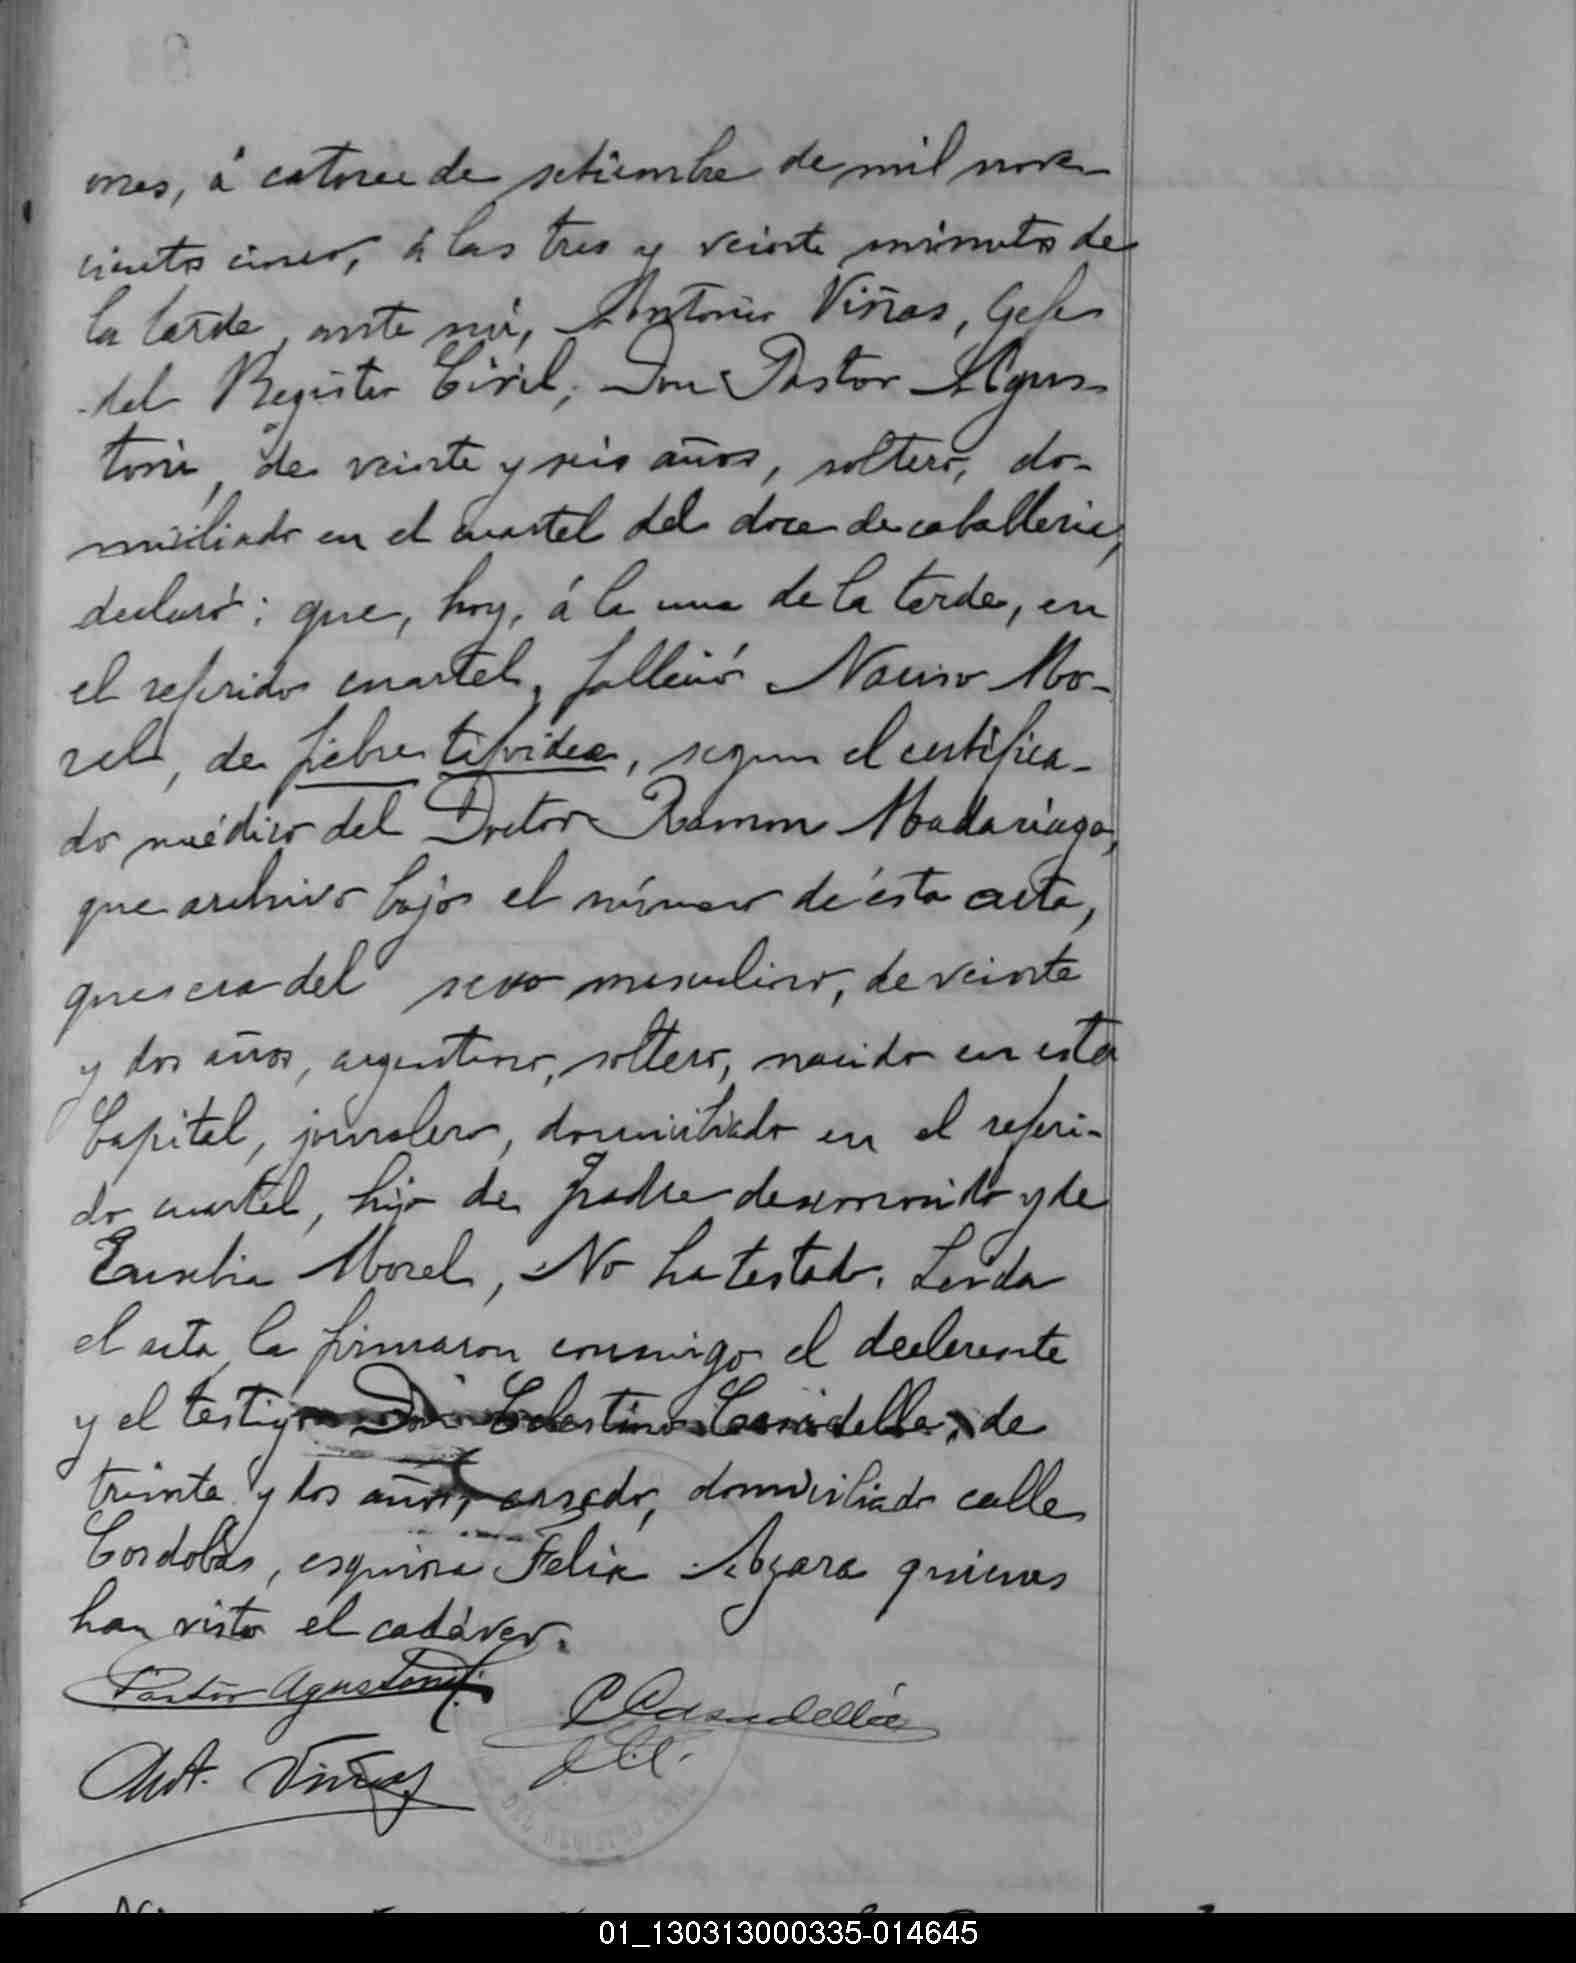 ones, á catorce de setiembre de mil nove-
cientos cinco, á las tres y veinte minutos de
la tarde, ante mí, Antonio Viñas, Gefe
del Registro Civil; Don Pastor Agus-
toni, de veinte y seis años, soltero, do-
miciliado en el cuartel del doce de caballeria,
declaró: que, hoy, á la una de la tarde, en
el referido cuartel, falleció Narciso Mo-
rel, de fiebre tifoidea, segun el certifica-
do médico del Doctor Ramon Madariaga,
que archivo bajo el número de ésta acta,
que era del sexo masculino, de veinte
y dos años, argentino, soltero, nacido en esta
Capital, jornalero, domiciliado en el referi-
do cuartel, hijo de padre desconocido y de
Eusebia Morel, No ha testado. Leida
el acta la firmaron conmigo el declarante
y el testigo Don Celestino Casadella, de
treinta y dos años, casado, domiciliado calle
Cordoba, esquina Felix Azara quienes
han visto el cadáver.
Pastor Agustoni
C Casadellá
Ant. Viñas
DEL REGISTRO CIVIL
01_130313000335-014645